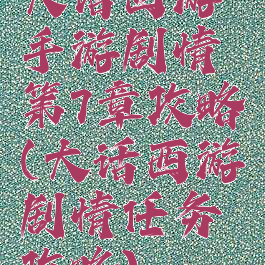 大话西游
手游剧情
第7章攻略
(大话西游
剧情任务
攻略)